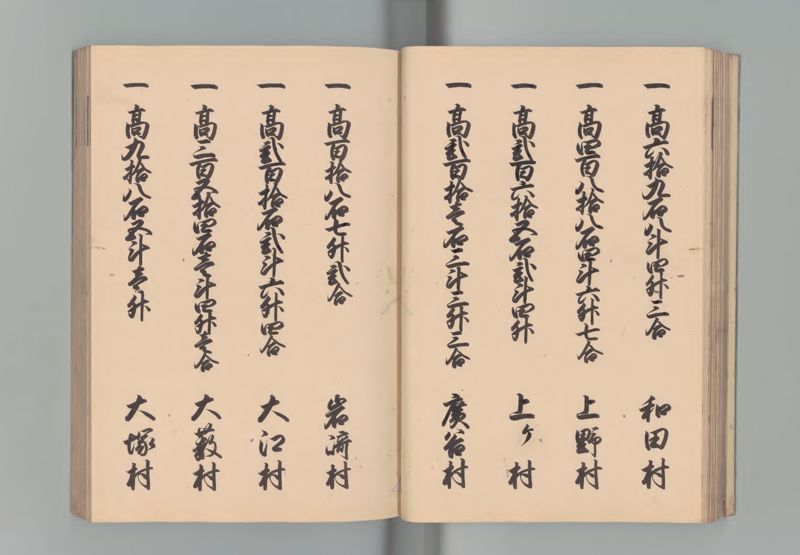 一 高六拾九石八斗四升三合 和田村
一 高四百八拾八石四斗六升七合 上野村
一 高弐百六拾五石弐斗四升 上ケ村
一 高弐百拾壱石三斗三升三合 廣谷村
一 高百拾八石七升弐合 岩崎村
一 高弐百拾石弐斗六升四合 大江村
一 高三百五拾四石壱斗四升壱合 大藪村
一 高九拾八石五斗壱升 大塚村